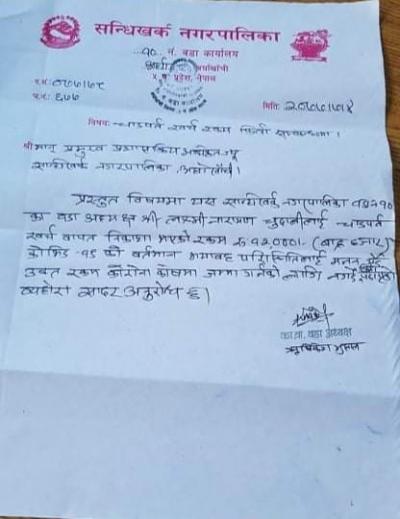 सन्धिखर्क नगरपालिका
१० नं. वडा कार्यालय
अर्घाखाँची
५ नं. प्रदेश, नेपाल
प.सं. ०७६।७७
च.नं. ६७७
मिति: २०७७।१।४
विषय: चाडपर्व खर्च रकम फिर्ता सम्बन्धमा ।
श्रीमान् प्रमुख प्रशासकिय अधिकृत ज्यू
सन्धिखर्क नगरपालिका, अर्घाखाँची ।
प्रस्तुत विषयमा यस सन्धिखर्क नगरपालिका वडा नं १०
का वडा अध्यक्ष श्री लक्ष्मी नारायण चुदालीलाई चाडपर्व
खर्च वापत निकासा भएको रकम रु १२,०००।- (बाह्र हजार)
कोभिड-१९ को वर्तमान भयावह परिस्थितिलाई मनन गर्दै
उक्त रकम कोरोना कोषमा जम्मा गर्नको लागि
व्यहोरा सादर अनुरोध छ ।
का.वा. वडा अध्यक्ष